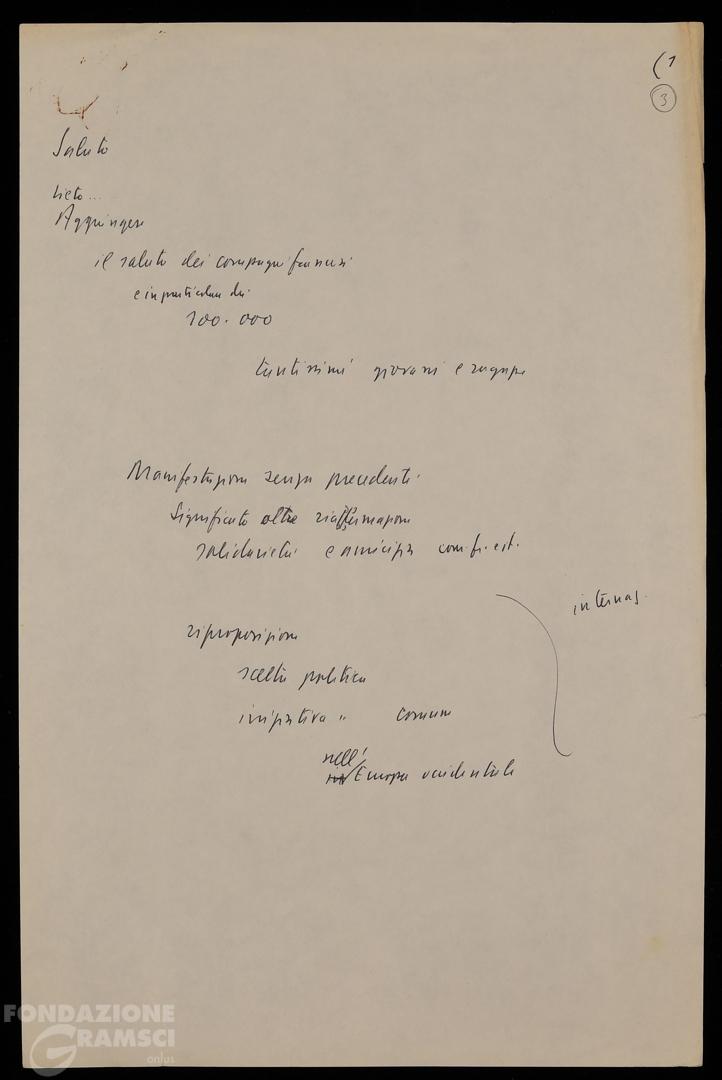 (1
3
Saluto
lieto...
Aggiungere
il saluto dei compagni francesi
e in particolare dei
100.000
tantissimi giovani e ragazze
Manifestazione senza precedenti
Significato oltre riaffermazione
solidarietà e amicizia
internaz.
riproposizione
scelta politica
iniziativa " comune
nell'
Europa occidentale
FONDAZIONE
GRAMSCI
onlus